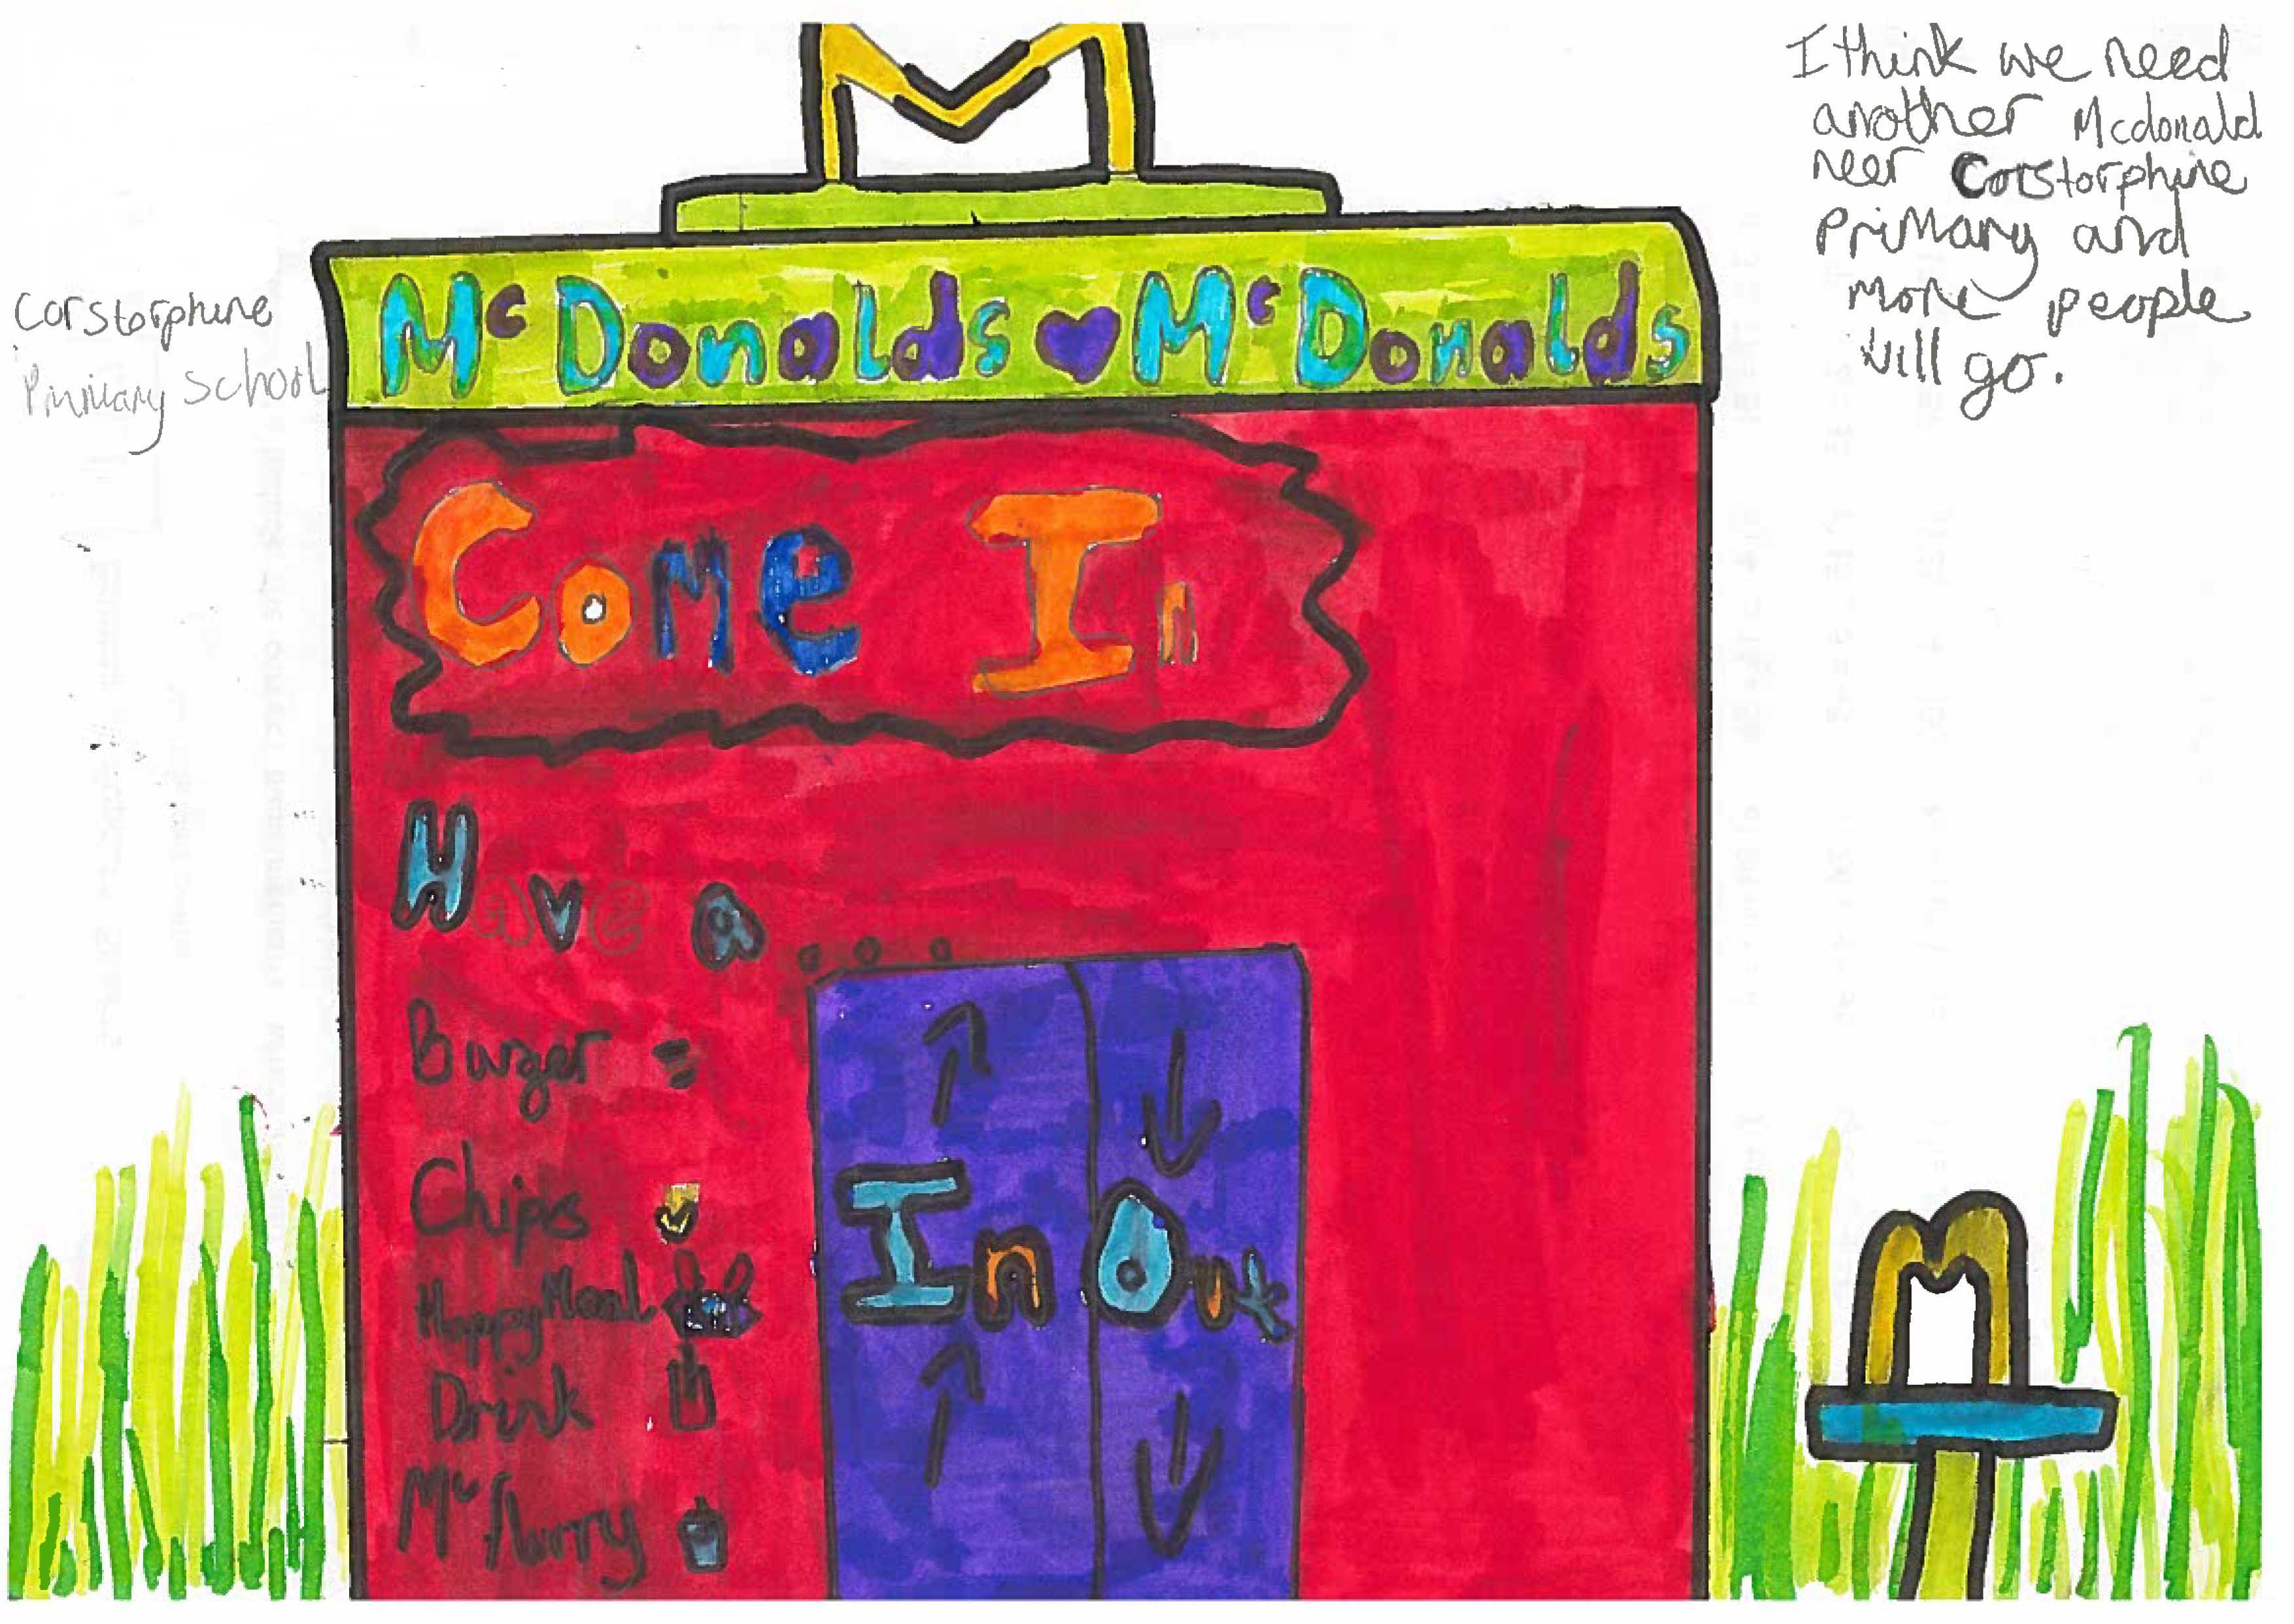 M
I think we need
another Mcdonald
neer Corstorphine
Primary and
more people
will go.
Corstorphine
Primary School
McDonalds ♥ McDonalds
Come In
Have a...
Burger =
Chips
Happy Meal
Drink
Mcflurry
In Out
M